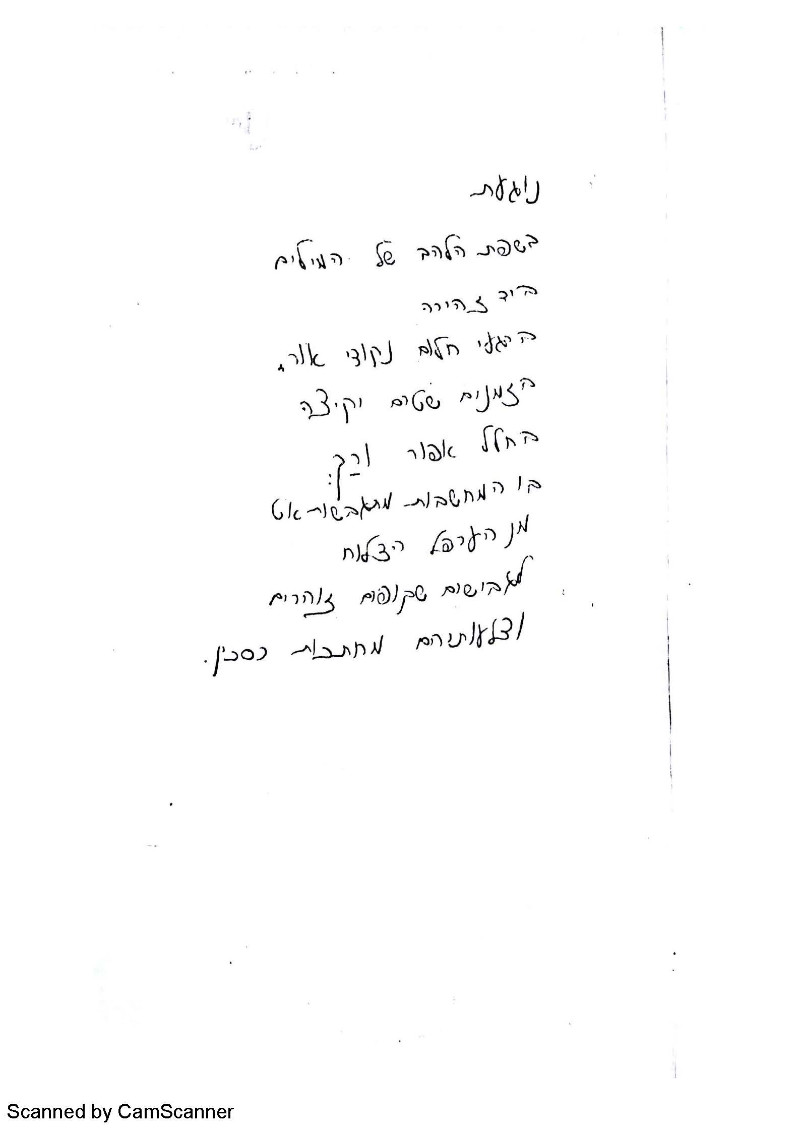 נוגעת
בשפת הלהב של המילים
ביד זהירה
ברגעי חלום נקודי אור,
בזמנים שטופי יקיצה
בחלל אפור ורך:
בו המחשבות מתגבשות אט
מן הערפל הצלוח
לגבישים שקופים זוהרים
וצלעותיהם מחתכות כסכין.
Scanned by CamScanner